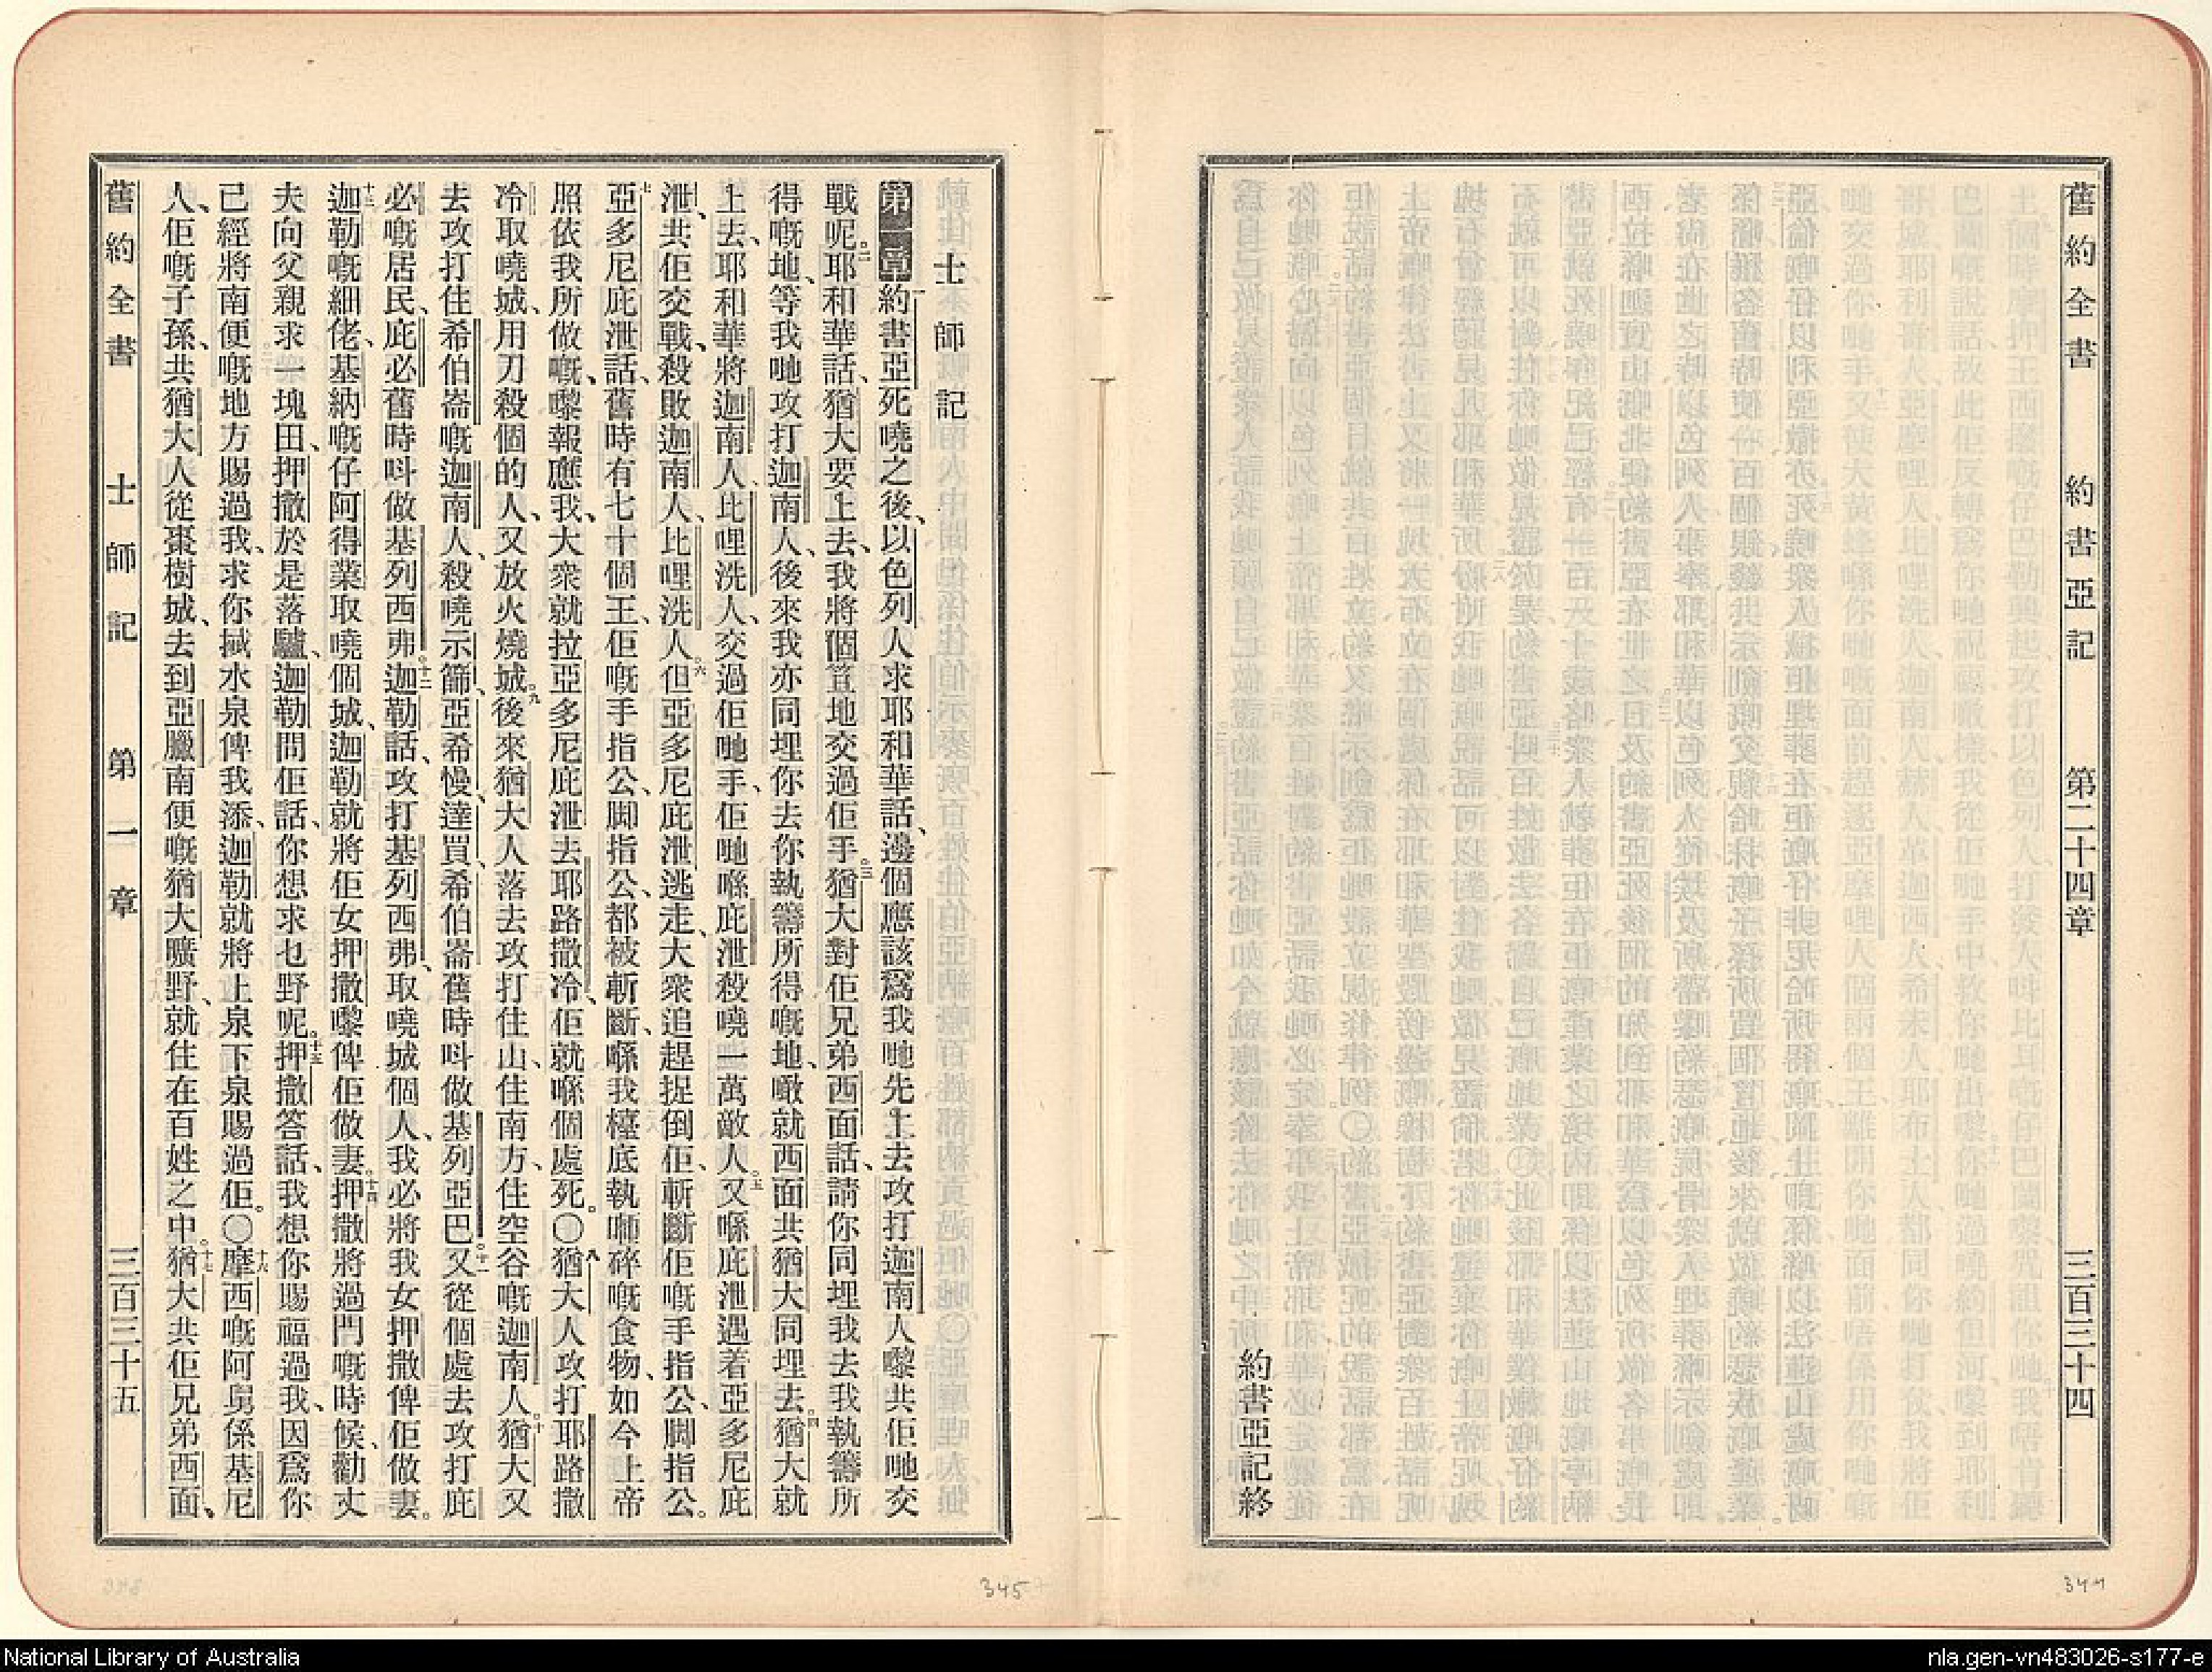 舊約全書 約書亞記 第二十四章 三百三十四
約書亞記終
士師記
第一章 一約書亞死嘵之後、以色列人求耶和華話、邊個應該爲我哋先上去攻打迦南人嚟共佢哋交
戰呢。二耶和華話、猶大要上去、我將個笪地交過佢手。三猶大對佢兄弟西面話、請你同埋我去我執籌所
得嘅地、等我哋攻打迦南人、後來我亦同埋你去你執籌所得嘅地、噉就西面共猶大同埋去。四猶大就
上去、耶和華將迦南人比哩洗人交過佢哋手、佢哋喺庇泄殺嘵一萬敵人。五又喺庇泄遇着亞多尼庇
泄、共佢交戰、殺敗迦南人、比哩洗人。六但亞多尼庇泄逃走、大衆追趕捉倒佢、斬斷佢嘅手指公、脚指公。
七亞多尼庇泄話、舊時有七十個王、佢嘅手指公、脚指公、都被斬斷、喺我檯底執碎嘅食物、如今上帝
照依我所做嘅、嚟報應我、大衆就拉亞多尼庇泄去耶路撒冷、佢就喺個處死。〇八猶大人攻打耶路撒
冷取嘵城、用刀殺個的人、又放火燒城。九後來猶大人落去攻打住山、住南方、住空谷嘅迦南人。十猶大又
去攻打住希伯崙嘅迦南人、殺嘵示篩、亞希慢、達買、希伯崙舊時呌做基列亞巴。十一又從個處去攻打庇
必嘅居民、庇必舊時呌做基列西弗。十二迦勒話、攻打基列西弗、取嘵城個人、我必將我女押撒俾佢做妻。
十三迦勒嘅細佬、基納嘅仔阿得業取嘵個城、迦勒就將佢女押撒嚟俾佢做妻。十四押撒將過門嘅時候、勸丈
夫向父親求一塊田、押撒於是落驢、迦勒問佢話、你想求乜野呢。十五押撒答話、我想你賜福過我、因爲你
已經將南便嘅地方賜過我、求你搣水泉俾我添、迦勒就將上泉下泉賜過佢。〇十六摩西嘅阿舅係基尼
人、佢嘅子孫、共猶大人從棗樹城、去到亞臘南便嘅猶大曠野、就住在百姓之中。十七猶大共佢兄弟西面、
舊約全書 士師記 第一章 三百三十五
345
344
National Library of Australia
nla.gen-vn483026-s177-e